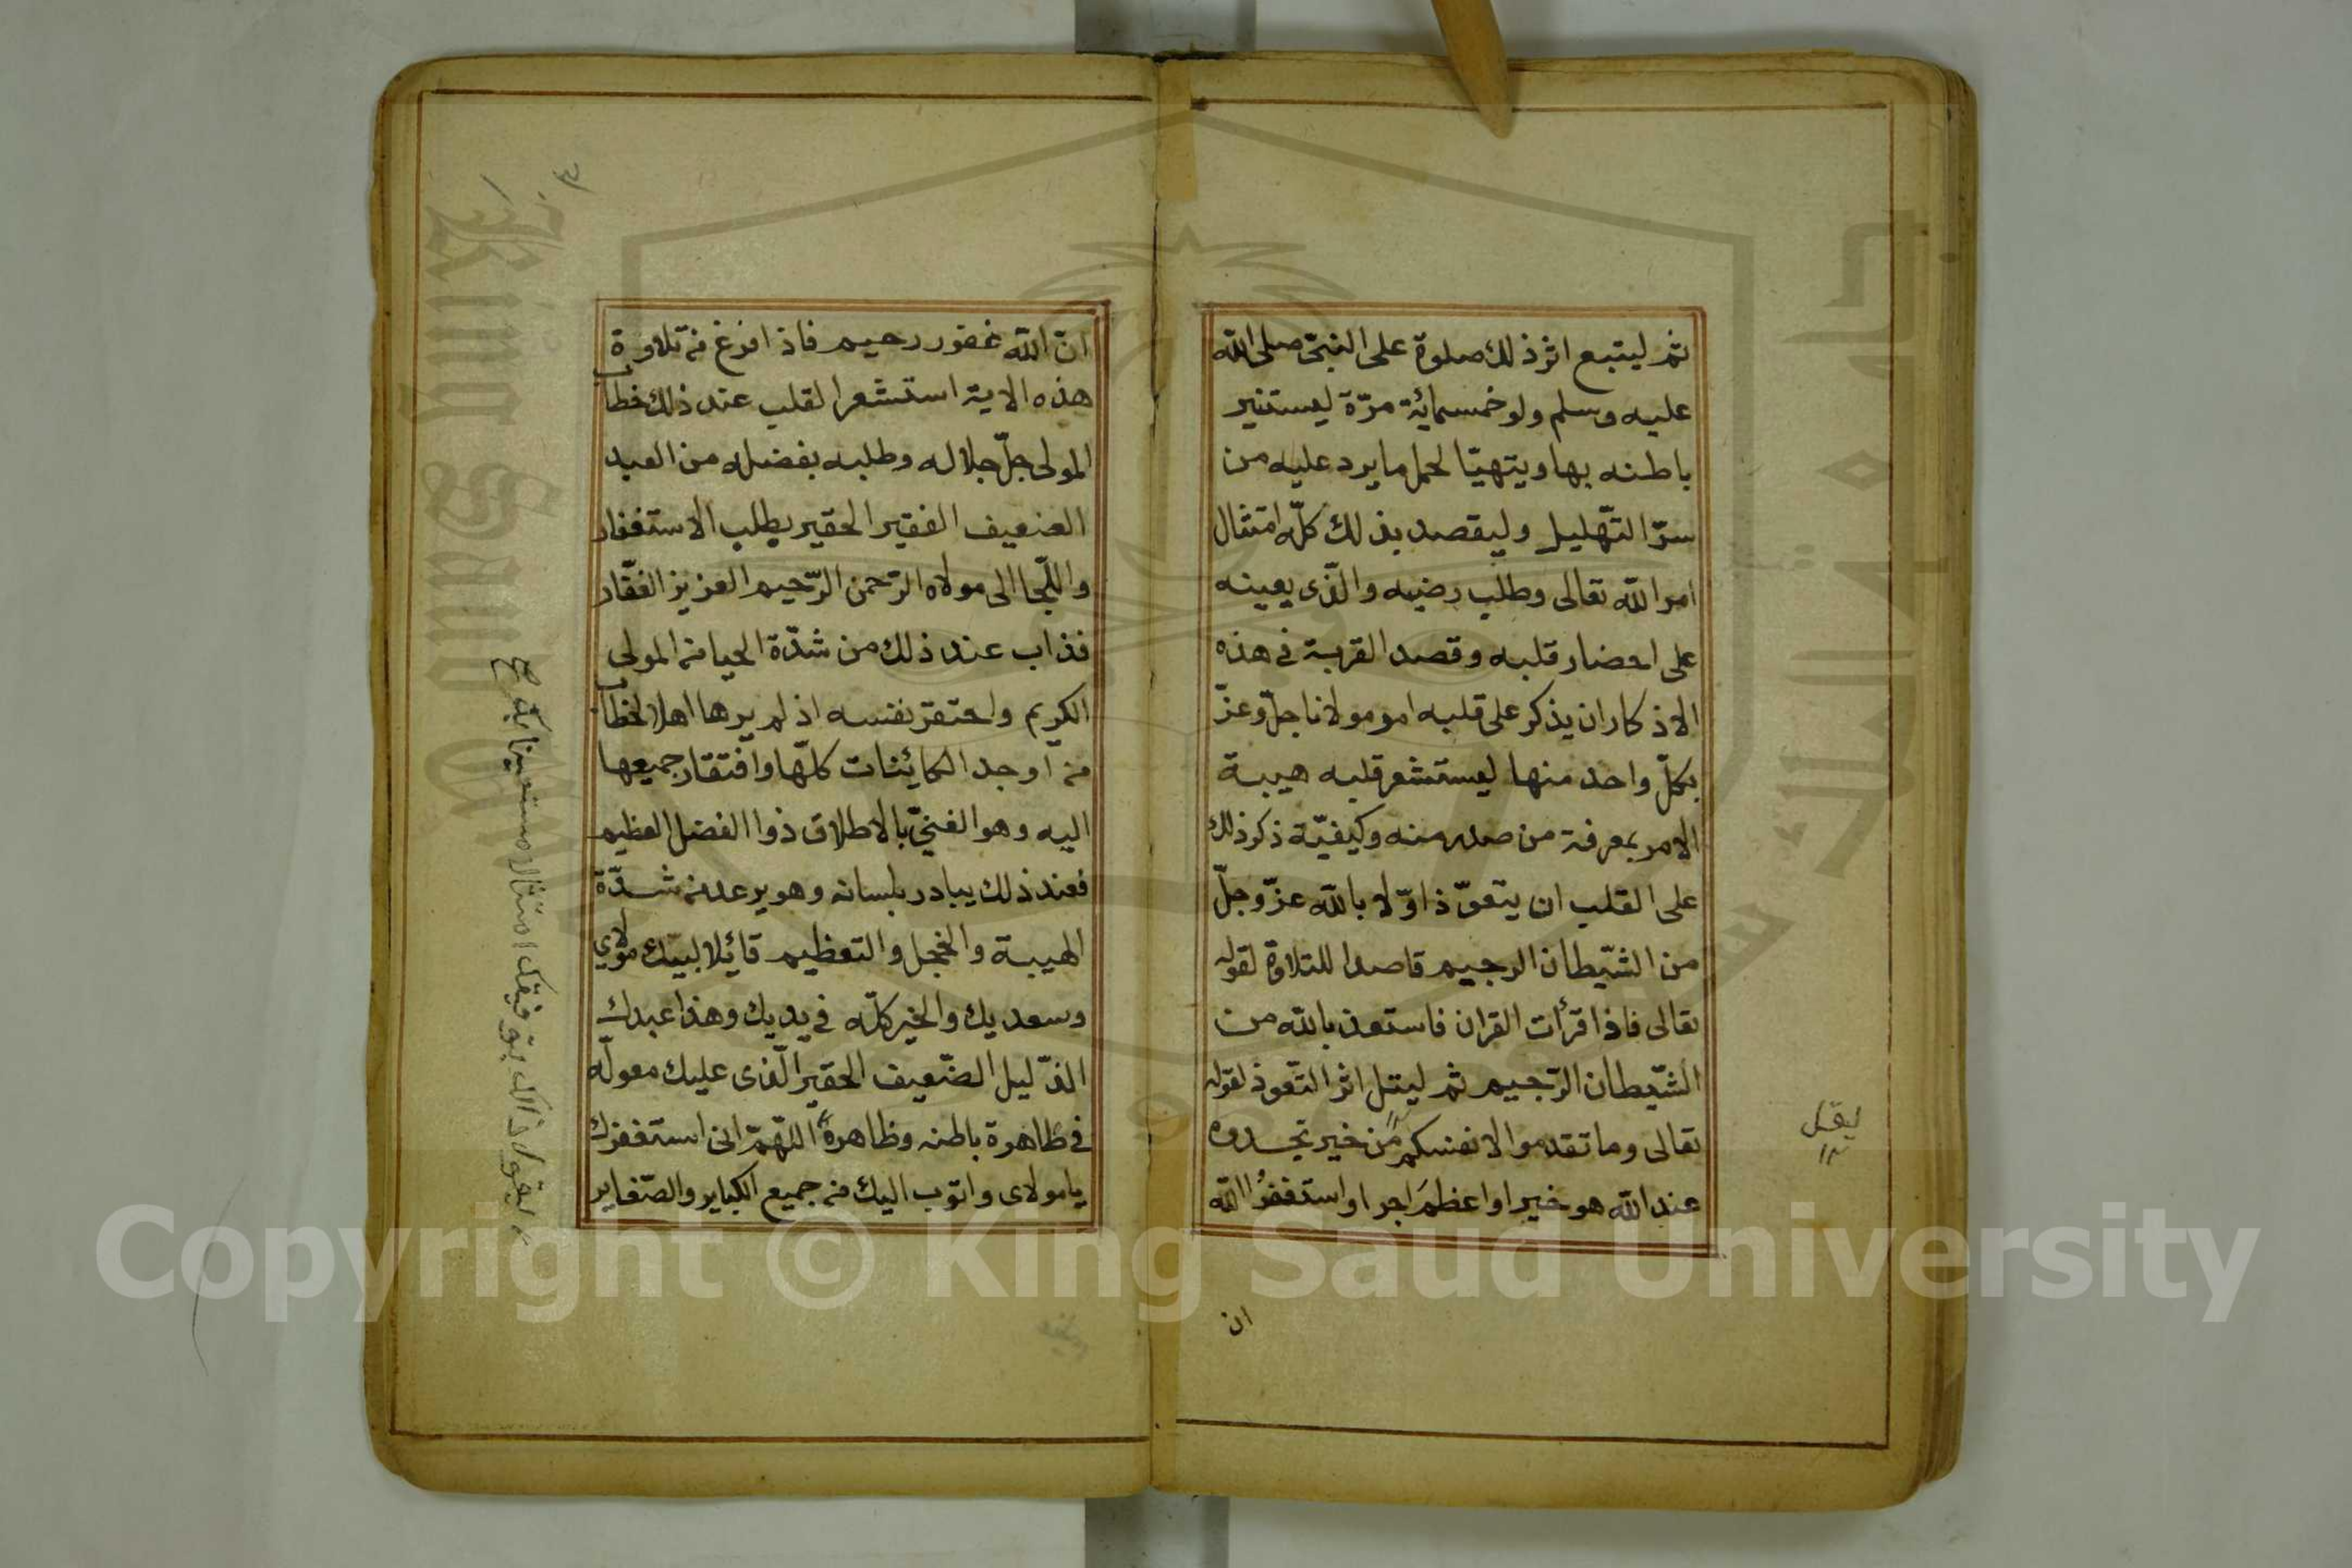 ثم ليتبع اثر ذلك صلوة على النبيّ صلى الله
عليه وسلم ولو خمسمائة مرّة ليستنير
باطنه بها ويتهيّا لحمل ما يرد عليه من
سرّ التّهليل وليقصد بذلك كلّه امتثال
امر الله تعالى وطلب رضيه والّذى يعينه
على احضار قلبه وقصد القربة في هذه
الاذكار ان يذكر على قلبه امر مولانا جلّ وعزّ
بكلّ واحد منها ليستشعر قلبه هيبة
الامر بمعرفة من صدر منه وكيفيّة ذكر ذلك
على القلب ان يتعوّذ اوّلا بالله عزّ وجلّ
من الشّيطان الرجيم قاصدا للتلاوة لقوله
تعالى فاذا قرأت القران فاستعذ بالله من
الشّيطان الرّجيم ثم ليتل اثر التّعوذ لقوله
تعالى وما تقدموا لانفسكم من خير تجدوه
عند الله هو خيرا واعظمَ اجرا واستغفرُ الله
ان
ليقل
ان الله غفور رحيم فاذا فرغ من تلاوة
هذه الاية استشعر القلب عند ذلك خطاب
المولى جلّ جلاله وطلبه بفضله من العبد
الضعيف الفقير الحقير يطلب الاستغفار
واللّجا الى مولاه الرّحمن الرّحيم العزيز الغفّار
فذاب عند ذلك من شدّة الحيا من المولى
الكريم واحتقر نفسه اذ لم يرها اهلا لخطاب
من اوجد الكائنات كلّها وافتقار جميعها
اليه وهو الغنيّ بالاطلاق ذوا الفضل العظيم
فعند ذلك يبادر بلسانه وهو يرعد من شدّة
الهيبة والخجل والتعظيم قائلا لبيّك مولاي
وسعديك والخير كلّه في يديك وهذا عبدك
الذّليل الضّعيف الحقير الّذى عليك معولّه
في طاهرة باطنه وظاهره اللّهمّ انى استغفرك
يا مولاى واتوب اليك من جميع الكباير والصّغاير
٣
ليقول ذالك بتوفيقك امتثالا مستعينا بك صح
Copyright © King Saud University
King Saud